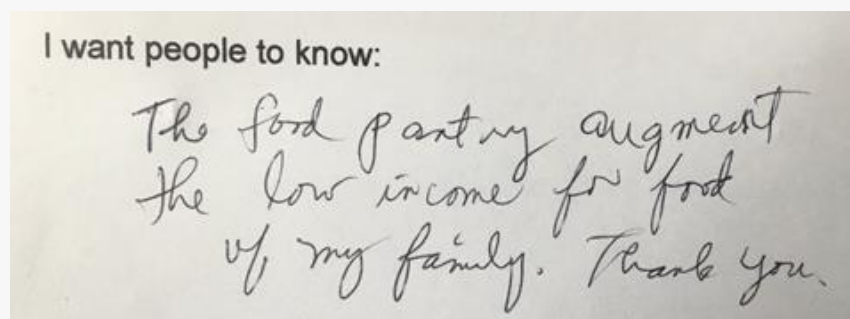 I want people to know:
The food pantry augment
the low income for food
of my family. Thank you.